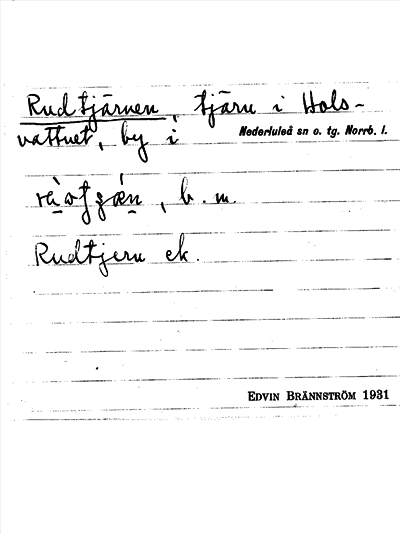 Rudtjärnen, tjärn i Hols-
vattnet, by i Nederluleå sn o. tg. Norrb. l.
, b. m.
Rudtjern ek.
EDVIN BRÄNNSTRÖM 1931